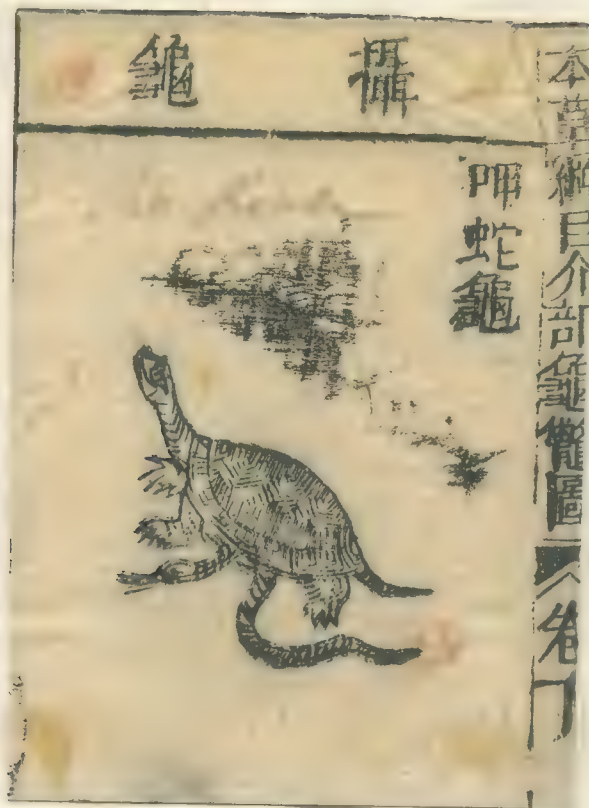 本草綱目介部龜鼈圖
卷
攝龜
呷蛇龜